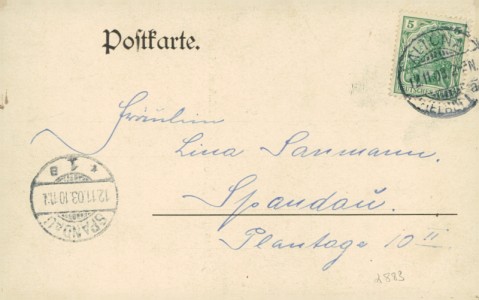 Postkarte.
5
ALTONA
12.11.03
Fräulein
Lina Sanmann.
Spandau.
Plantage 10 II
SPANDAU
12.11.03.10
1 B